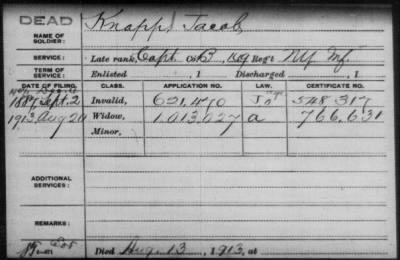 DEAD
Knapp, Jacob
NAME OF SOLDIER:
SERVICE: Late rank, Capt. Co. B, 109 Reg't NY Inf.
TERM OF SERVICE: Enlisted , 1 Discharged , 1
DATE OF FILING. CLASS. APPLICATION NO. LAW. CERTIFICATE NO.
1887 Sept. 2 Invalid, 621.470 548.317
1913 Aug 20 Widow, 1.013.027 a 766.631
Minor,
ADDITIONAL SERVICES:
REMARKS:
Died Aug. 13, 1913, at